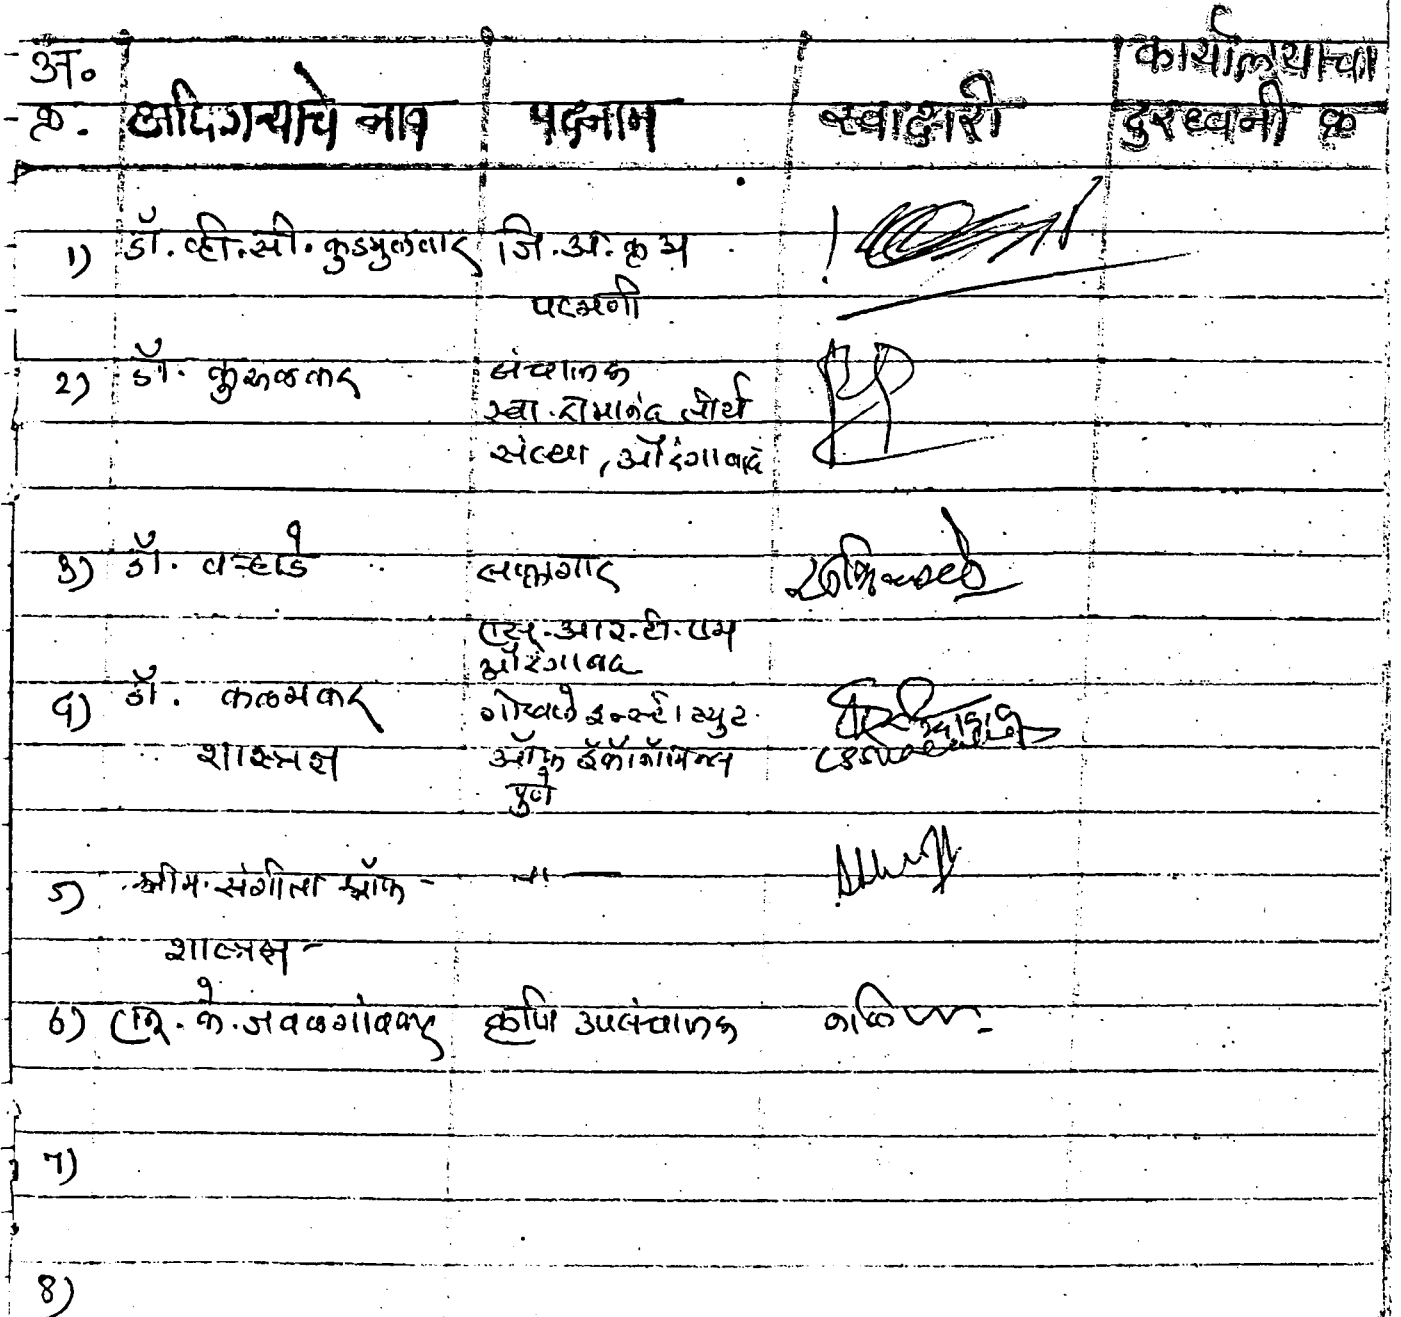 अ.
क्र. अधिकाऱ्याचे नाव पदनाम स्वाक्षरी
कार्यालयाचा
दुरध्वनी क्र
1) डॉ. व्ही.सी. कुडमुलवार जि.अ.कृ.अ
परभणी
2) डॉ. कुरुळकर संचालक
स्वा. रामानंद तीर्थ
संस्था, औरंगाबाद
3) डॉ. वऱ्हाडे सल्लागार
एस.आर.टी.एम
औरंगाबाद
4) डॉ. कळमकर गोखले इन्स्टीट्युट
शास्त्रज्ञ ऑफ इकॉनॉमिक्स
पुणे
5) श्रीम. संगीता श्रॉफ - -"-
शास्त्रज्ञ -
6) एन. के. जवळगांवकर कृषि उपसंचालक
7)
8)